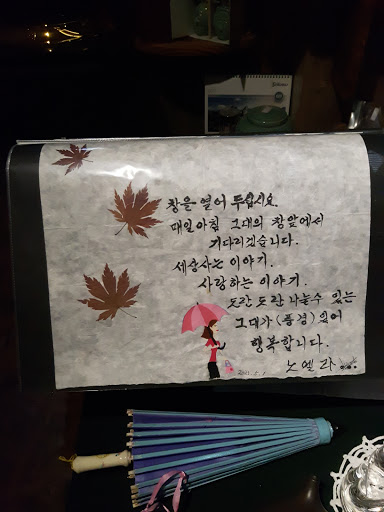 창을 열어 두십시요.
매일아침 그대의 창앞에서
기다리겠습니다.
세상사는 이야기.
사랑하는 이야기.
도란도란 나눌수 있는
그대가 (풍경) 있어
행복합니다.
노엘라